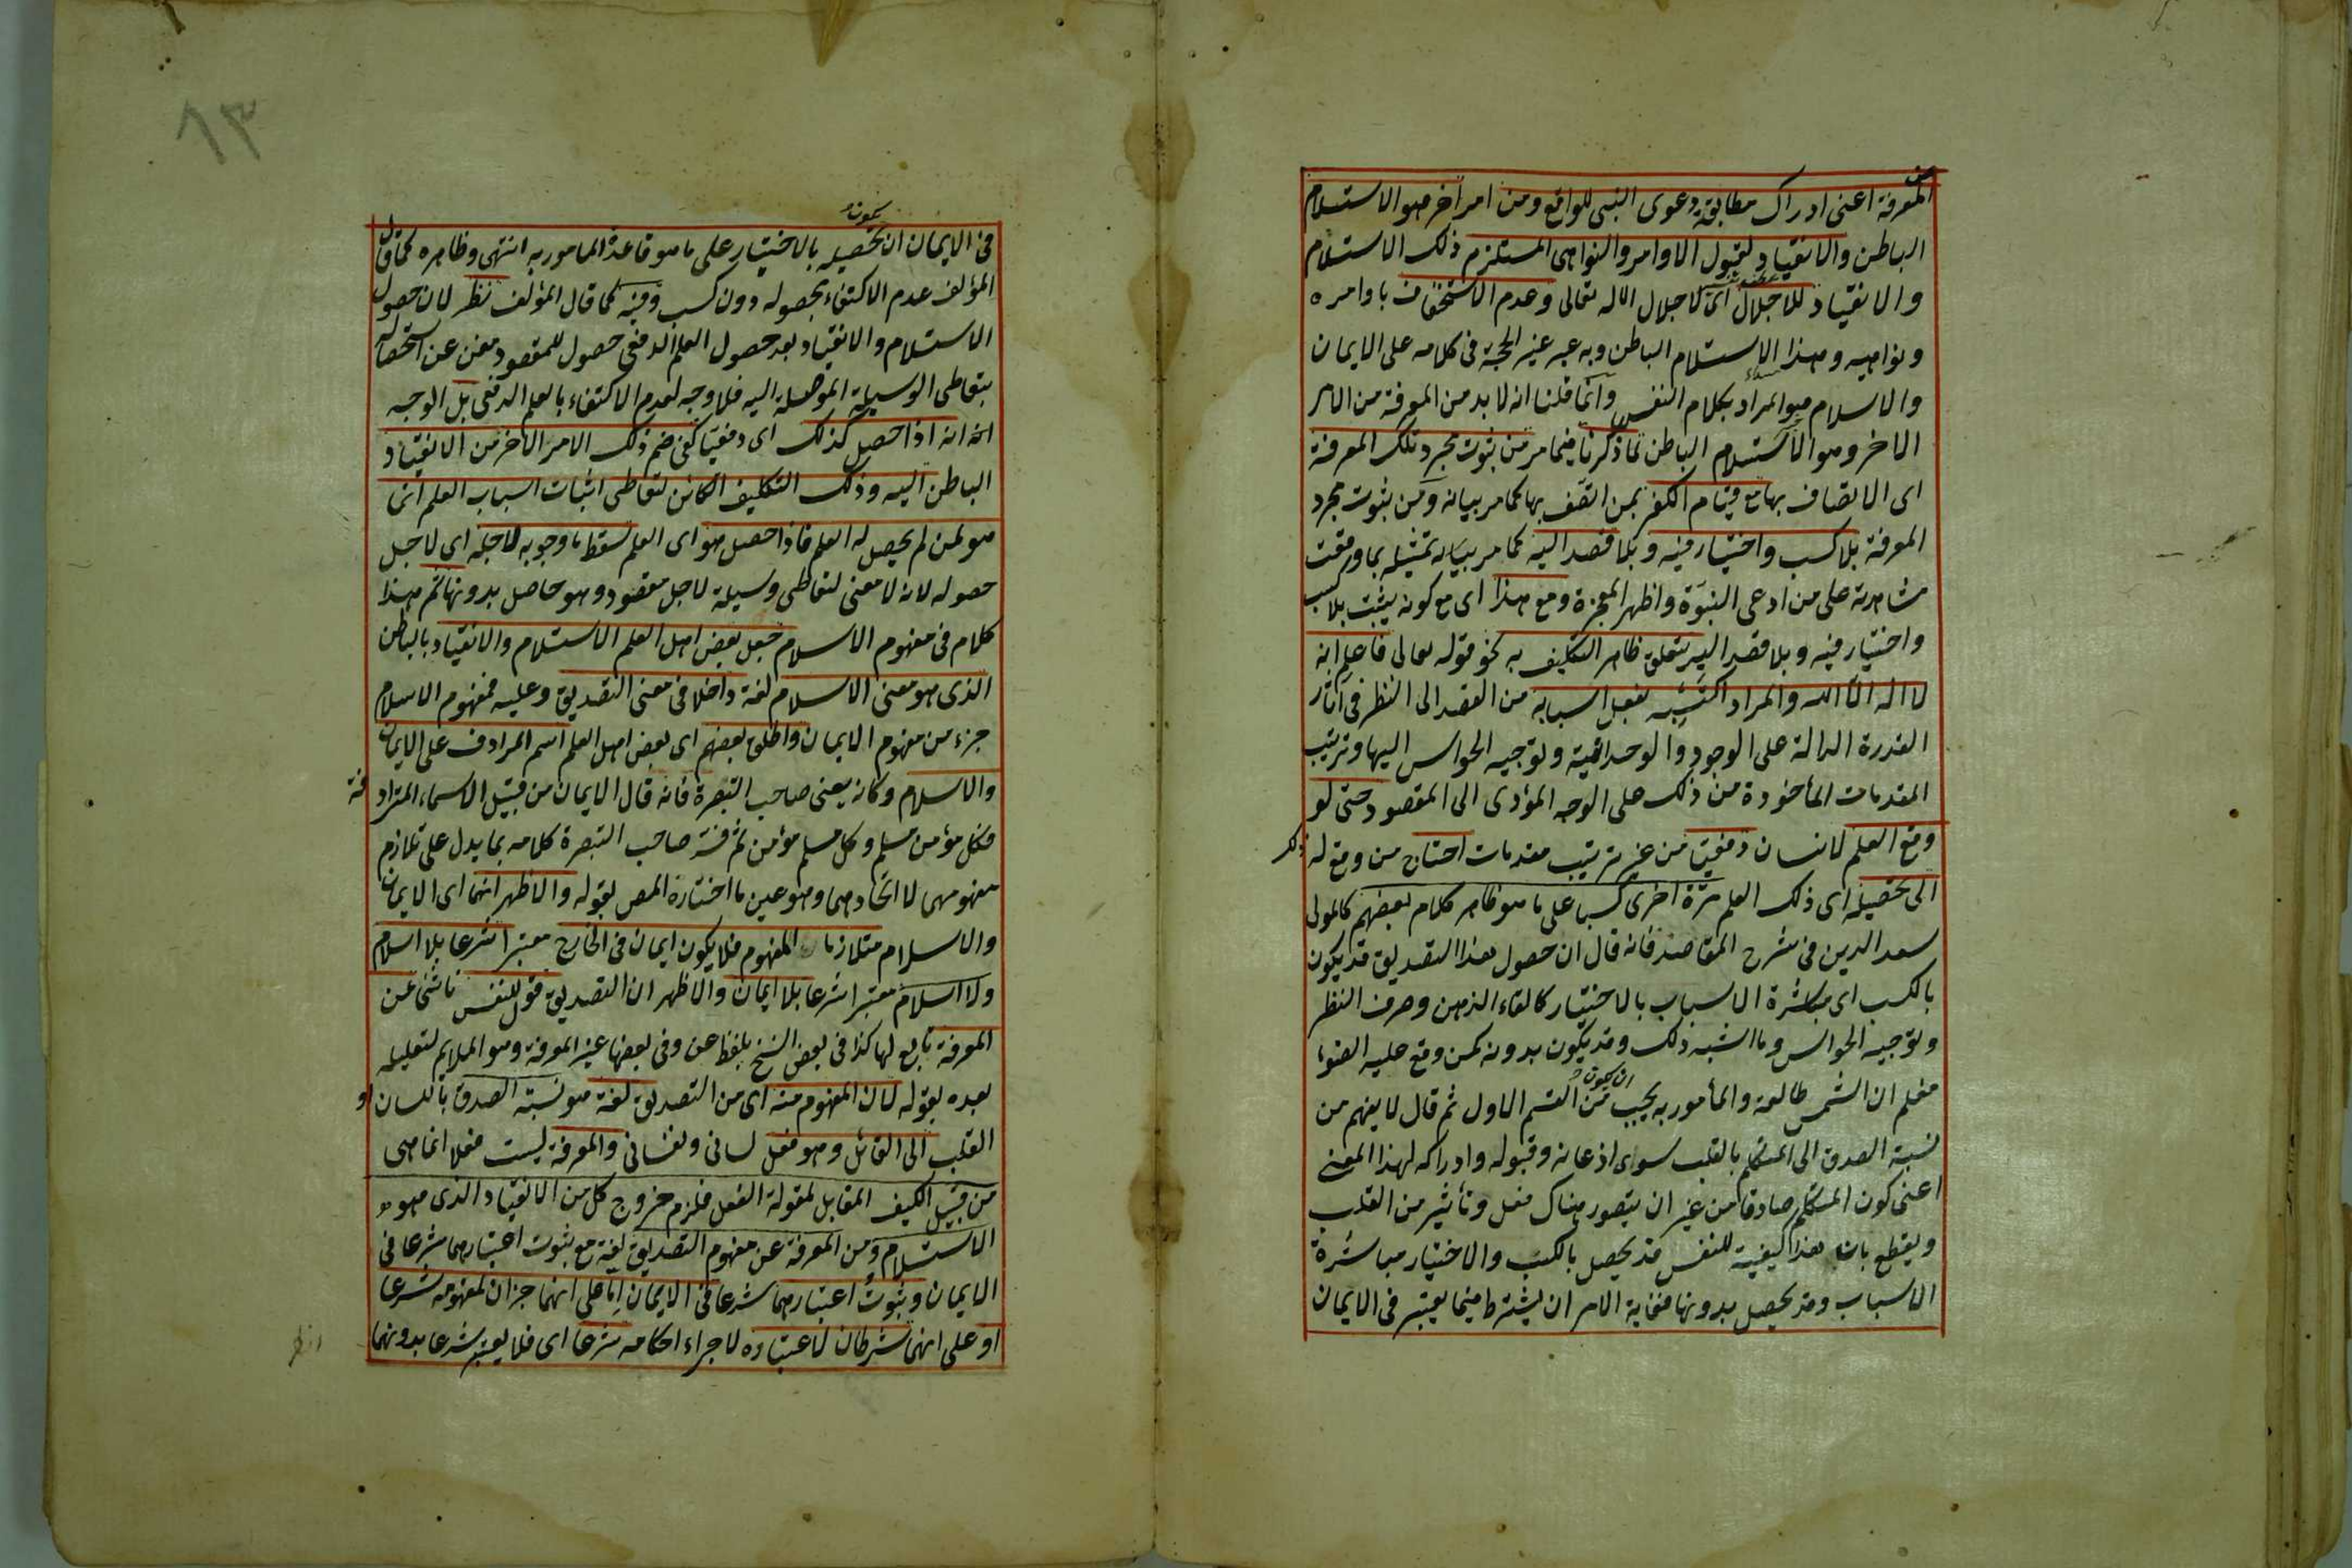 من
المعرفة اعنى ادراك مطابقة دعوى النبى للواقع ومن امر اخر هو الاستسلام
الباطن والانقياد لقبول الاوامر والنواهى المستلزم ذلك الاستسلام
والانقياد للاجلال اى لاجلال الاله تعالى وعدم الاستخفاف باوامره
ونواهيه وهذا الاستسلام الباطن وبه عبر غير الحجة فى كلامه على الايمان
والاسلام هو المراد بكلام النفس وانما قلنا انه لا بد من المعرفة من الامر
الاخر وهو الاستسلام الباطن لما ذكرنا فيما مر من ثبوت مجرد تلك المعرفة
اى الاتصاف بها مع قيام الكفر بمن اتصف بها كما مر بيانه ومن ثبوت مجرد
المعرفة بلا كسب واختيار فيه وبلا قصد اليه كما مر بيانه تمثيله بما وقعت
مشاهدته على من ادعى النبوة واظهر المعجزة ومع هذا اى مع كونه يثبت بلا كسب
واختيار فيه وبلا قصد اليه يتعلق ظاهر التكليف به نحو قوله تعالى فاعلم انه
لا اله الا الله والمراد اكتسبه بفعل اسبابه من القصد الى النظر فى آثار
القدرة الدالة على الوجود والوحدانية وتوجيه الحواس اليها وترتيب
المقدمات المأخوذة من ذلك على الوجه المؤدى الى المقصود حتى لو
وقع العلم لانسان دفعى من غير ترتيب مقدمات احتاج من وقع له ذلك
الى تحصيله اى ذلك العلم مرة اخرى كسبا على ما هو ظاهر كلام بعضهم كالمولى
سعد الدين فى شرح المقاصد فانه قال ان حصول هذا التصديق قد يكون
بالكسب اى مباشرة الاسباب بالاختيار كالقاء الذهن وصرف النظر
وتوجيه الحواس وما اشبه ذلك وقد يكون بدونه كمن وقع عليه الضوء
فعلم ان الشمس طالعة والمأمور به يجب ان يكون من القسم الاول ثم قال لا يفهم من
نسبة الصدق الى المتكلم بالقلب سوى اذعانه وقبوله وادراكه لهذا المعنى
اعنى كون المتكلم صادقا من غير ان يتصور هناك فعل وتأثير من القلب
ويقطع بان هذا كيفية للنفس قد يحصل بالكسب والاختيار مباشرة
الاسباب وقد يحصل بدونها فغاية الامر ان يشترط فيما يعتبر فى الايمان
٨٣
فى الايمان ان يكون تحصيله بالاختيار على ما هو قاعدة المامور به انتهى وظاهره كما قال
المؤلف عدم الاكتفاء بحصوله دون كسب وفيه كما قال المؤلف نظر لان حصول
الاستسلام والانقياد بعد حصول العلم الدفعى حصول للمقصود مغن عن استحصاله
بتعاطى الوسيلة الموصلة اليه فلا وجه لعدم الاكتفاء بالعلم الدفعى بل الوجه
انه اذا حصل كذلك اى دفعيا كفى ضم ذلك الامر الاخر من الانقياد
الباطن اليه وذلك التكليف الكائن لتعاطى اثبات اسباب العلم انما
هو لمن لم يحصل له العلم فاذا حصل هو اى العلم سقط ما وجوبه لاجله اى لاجل
حصوله لانه لا معنى لتعاطى وسيلة لاجل مقصود وهو حاصل بدونها ثم هذا
كلام فى مفهوم الاسلام جعل بعض اهل العلم الاستسلام والانقياد بالباطن
الذى هو معنى الاسلام لغة داخلا فى معنى التصديق وعليه فمفهوم الاسلام
جزء من مفهوم الايمان واطلق بعضهم اى بعض اهل العلم اسم المرادف على الايمان
والاسلام وكانه يعنى صاحب التبصرة فانه قال الايمان من قبيل الاسماء المترادفة
فكل مؤمن مسلم وكل مسلم مؤمن ثم فسر صاحب التبصرة كلامه بما يدل على تلازم
مفهومهما لا اتحادهما وهو عين ما اختاره المص بقوله والاظهر انهما اى الايمان
والاسلام متلازما المفهوم فلا يكون ايمان فى الخارج معتبرا شرعا بلا اسلام
ولا اسلام معتبرا شرعا بلا ايمان والاظهر ان التصديق قول للنفس ناشئ عن
المعرفة تابع لها كذا فى بعض النسخ بلفظ عن وفى بعضها غير المعرفة وهو الملايم لتعليله
بعده بقوله لان المفهوم منه اى من التصديق لغة هو نسبة الصدق باللسان او
القلب الى القائل وهو فعل لسانى ونفسانى والمعرفة ليست فعلا انما هى
من قبيل الكيف المقابل لمقولة الفعل فلزم خروج كل من الانقياد الذى هو
الاستسلام ومن المعرفة عن مفهوم التصديق لغة مع ثبوت اعتبارهما شرعا فى
الايمان وثبوت اعتبارهما شرعا فى الايمان اما على انهما جزءان لمفهومه شرعا
او على انهما شرطان لاعتباره لاجراء احكامه شرعا اى فلا يعتبر شرعا بدونهما